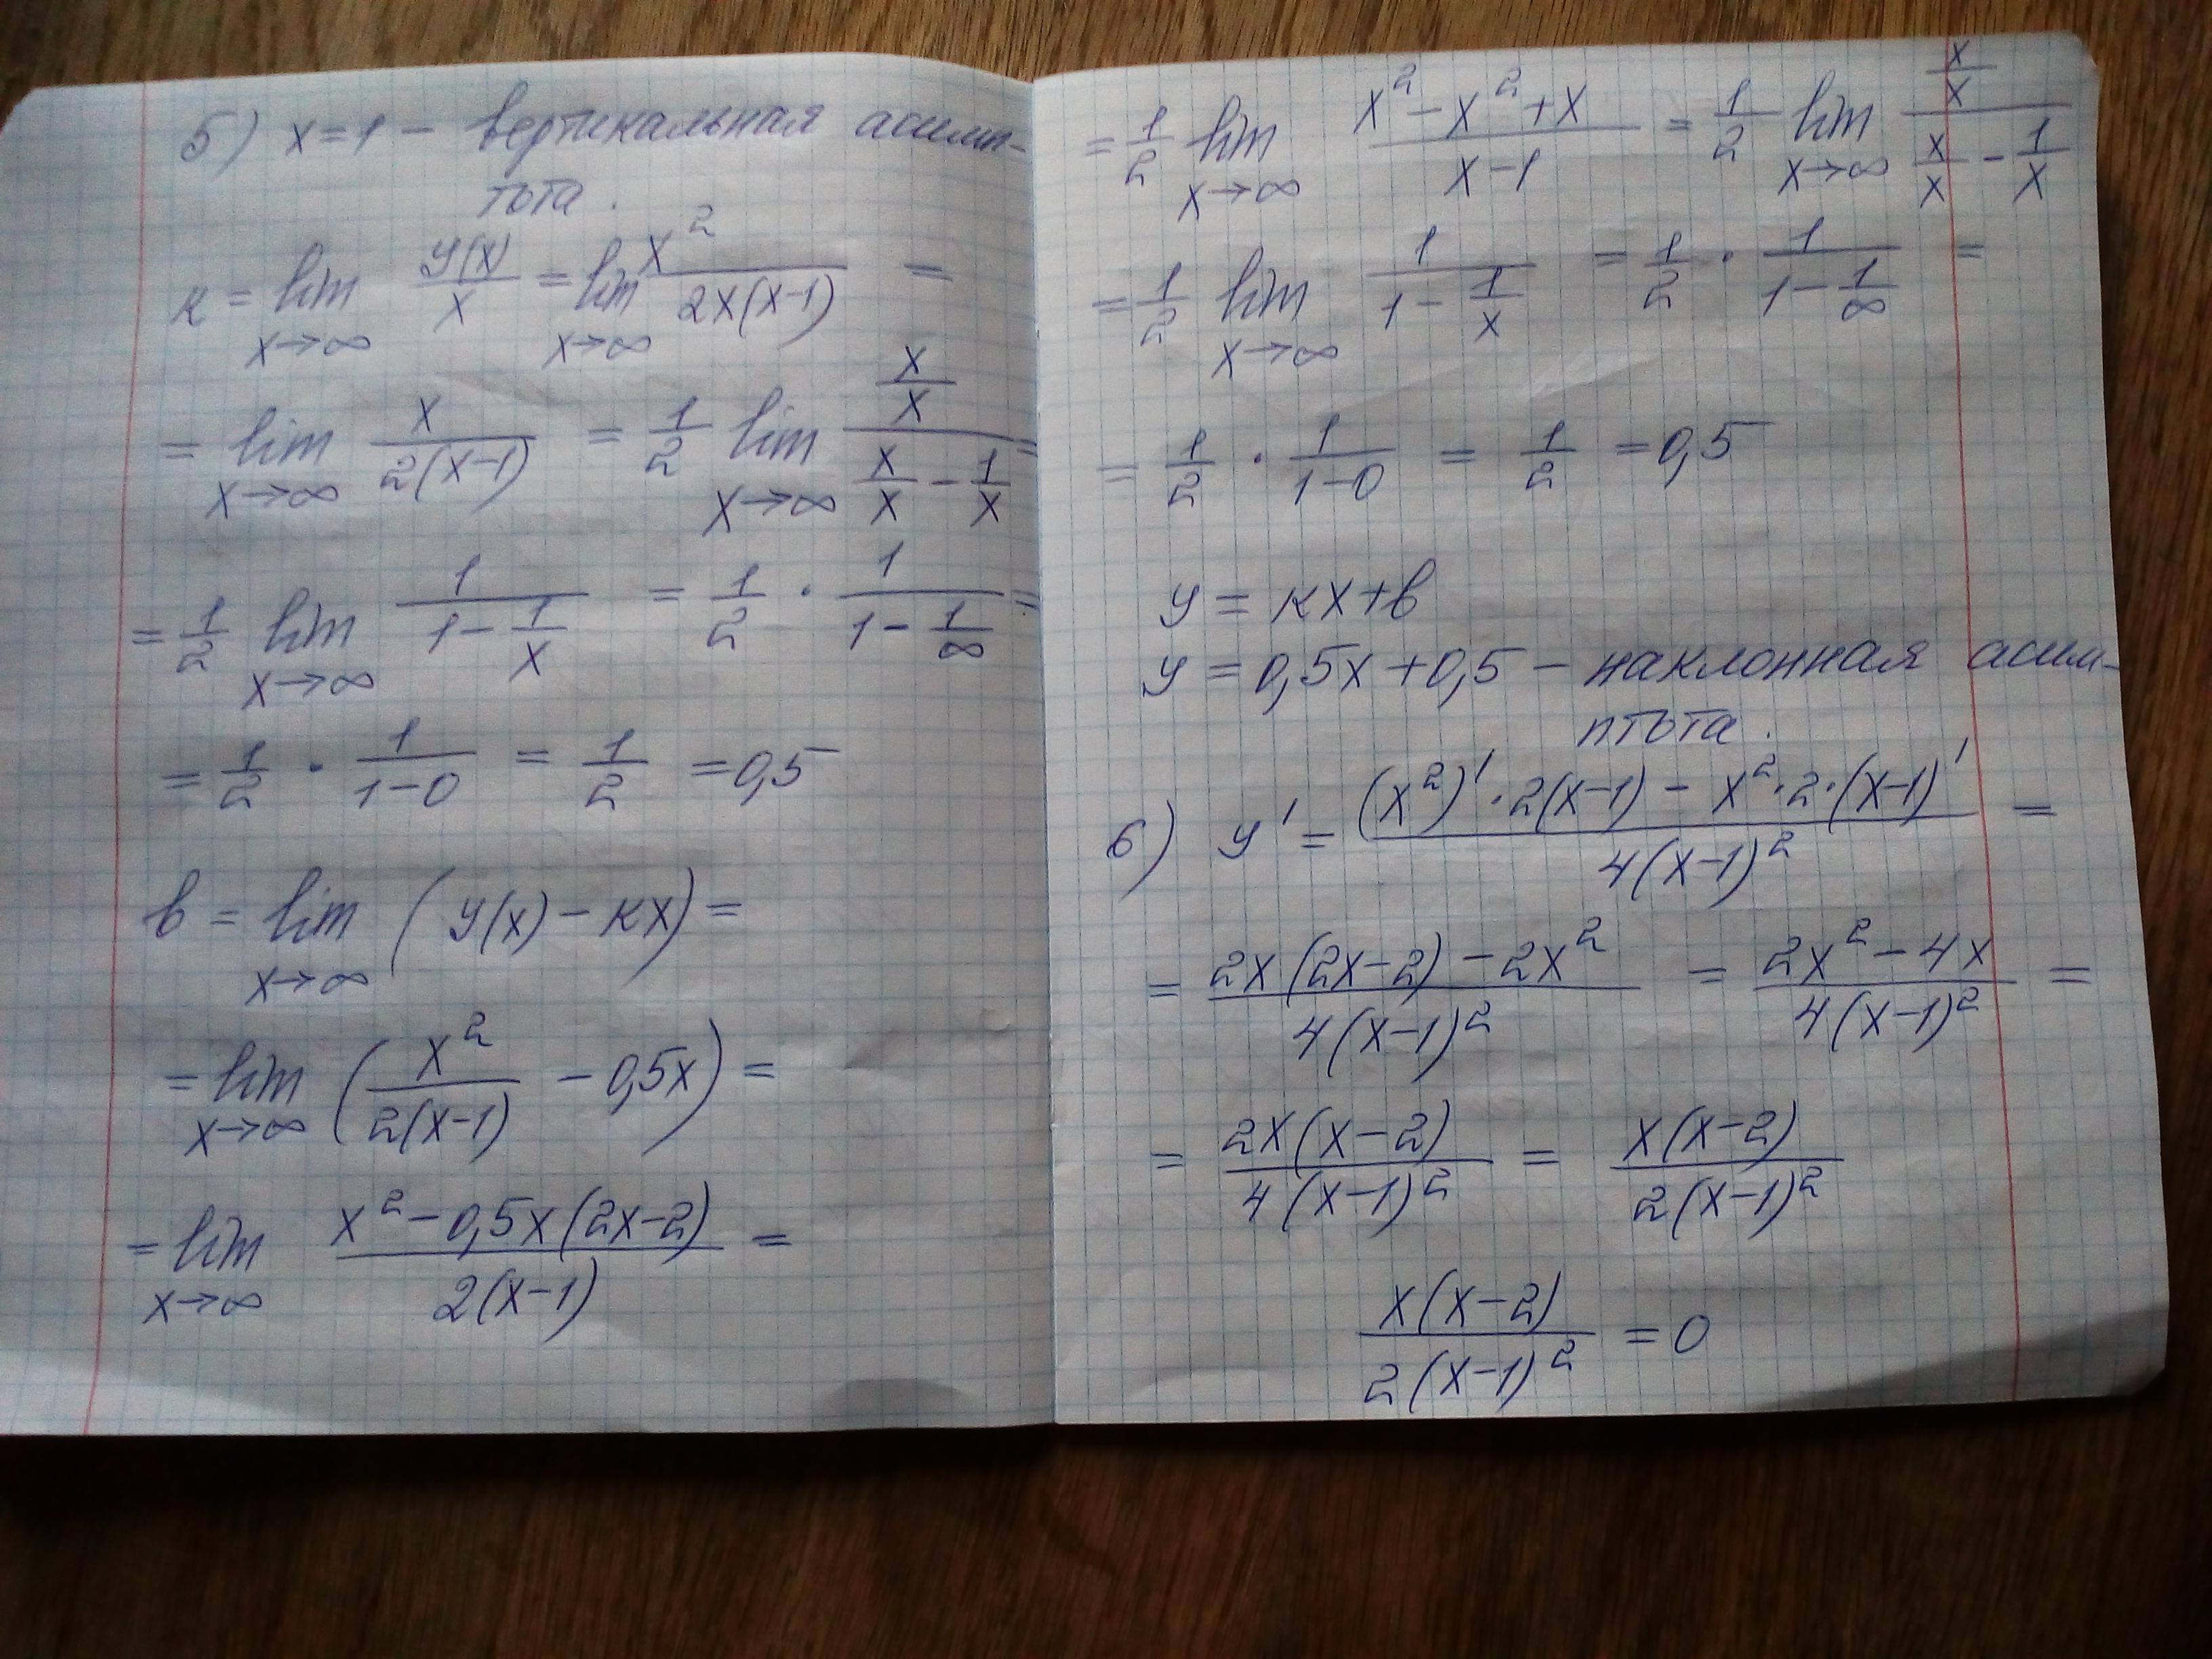 5) x=1 – вертикальная асимп-
тота.
к = lim x→∞ y(x)/x = lim x→∞ x²/(2x(x-1)) =
= lim x→∞ x/(2(x-1)) = 1/2 lim x→∞ (x/x)/(x/x - 1/x) =
= 1/2 lim x→∞ 1/(1 - 1/x) = 1/2 · 1/(1 - 1/∞) =
= 1/2 · 1/(1-0) = 1/2 = 0,5
в = lim x→∞ (y(x) - кx) =
= lim x→∞ (x²/(2(x-1)) - 0,5x) =
= lim x→∞ (x² - 0,5x(2x-2))/(2(x-1)) =
= 1/2 lim x→∞ (x² - x² + x)/(x-1) = 1/2 lim x→∞ (x/x)/(x/x - 1/x)
= 1/2 lim x→∞ 1/(1 - 1/x) = 1/2 · 1/(1 - 1/∞) =
= 1/2 · 1/(1-0) = 1/2 = 0,5
y = кx+в
y = 0,5x + 0,5 – наклонная асим-
птота.
6) y' = ((x²)' · 2(x-1) - x² · 2 · (x-1)')/(4(x-1)²) =
= (2x(2x-2) - 2x²)/(4(x-1)²) = (2x² - 4x)/(4(x-1)²) =
= 2x(x-2)/(4(x-1)²) = x(x-2)/(2(x-1)²)
x(x-2)/(2(x-1)²) = 0